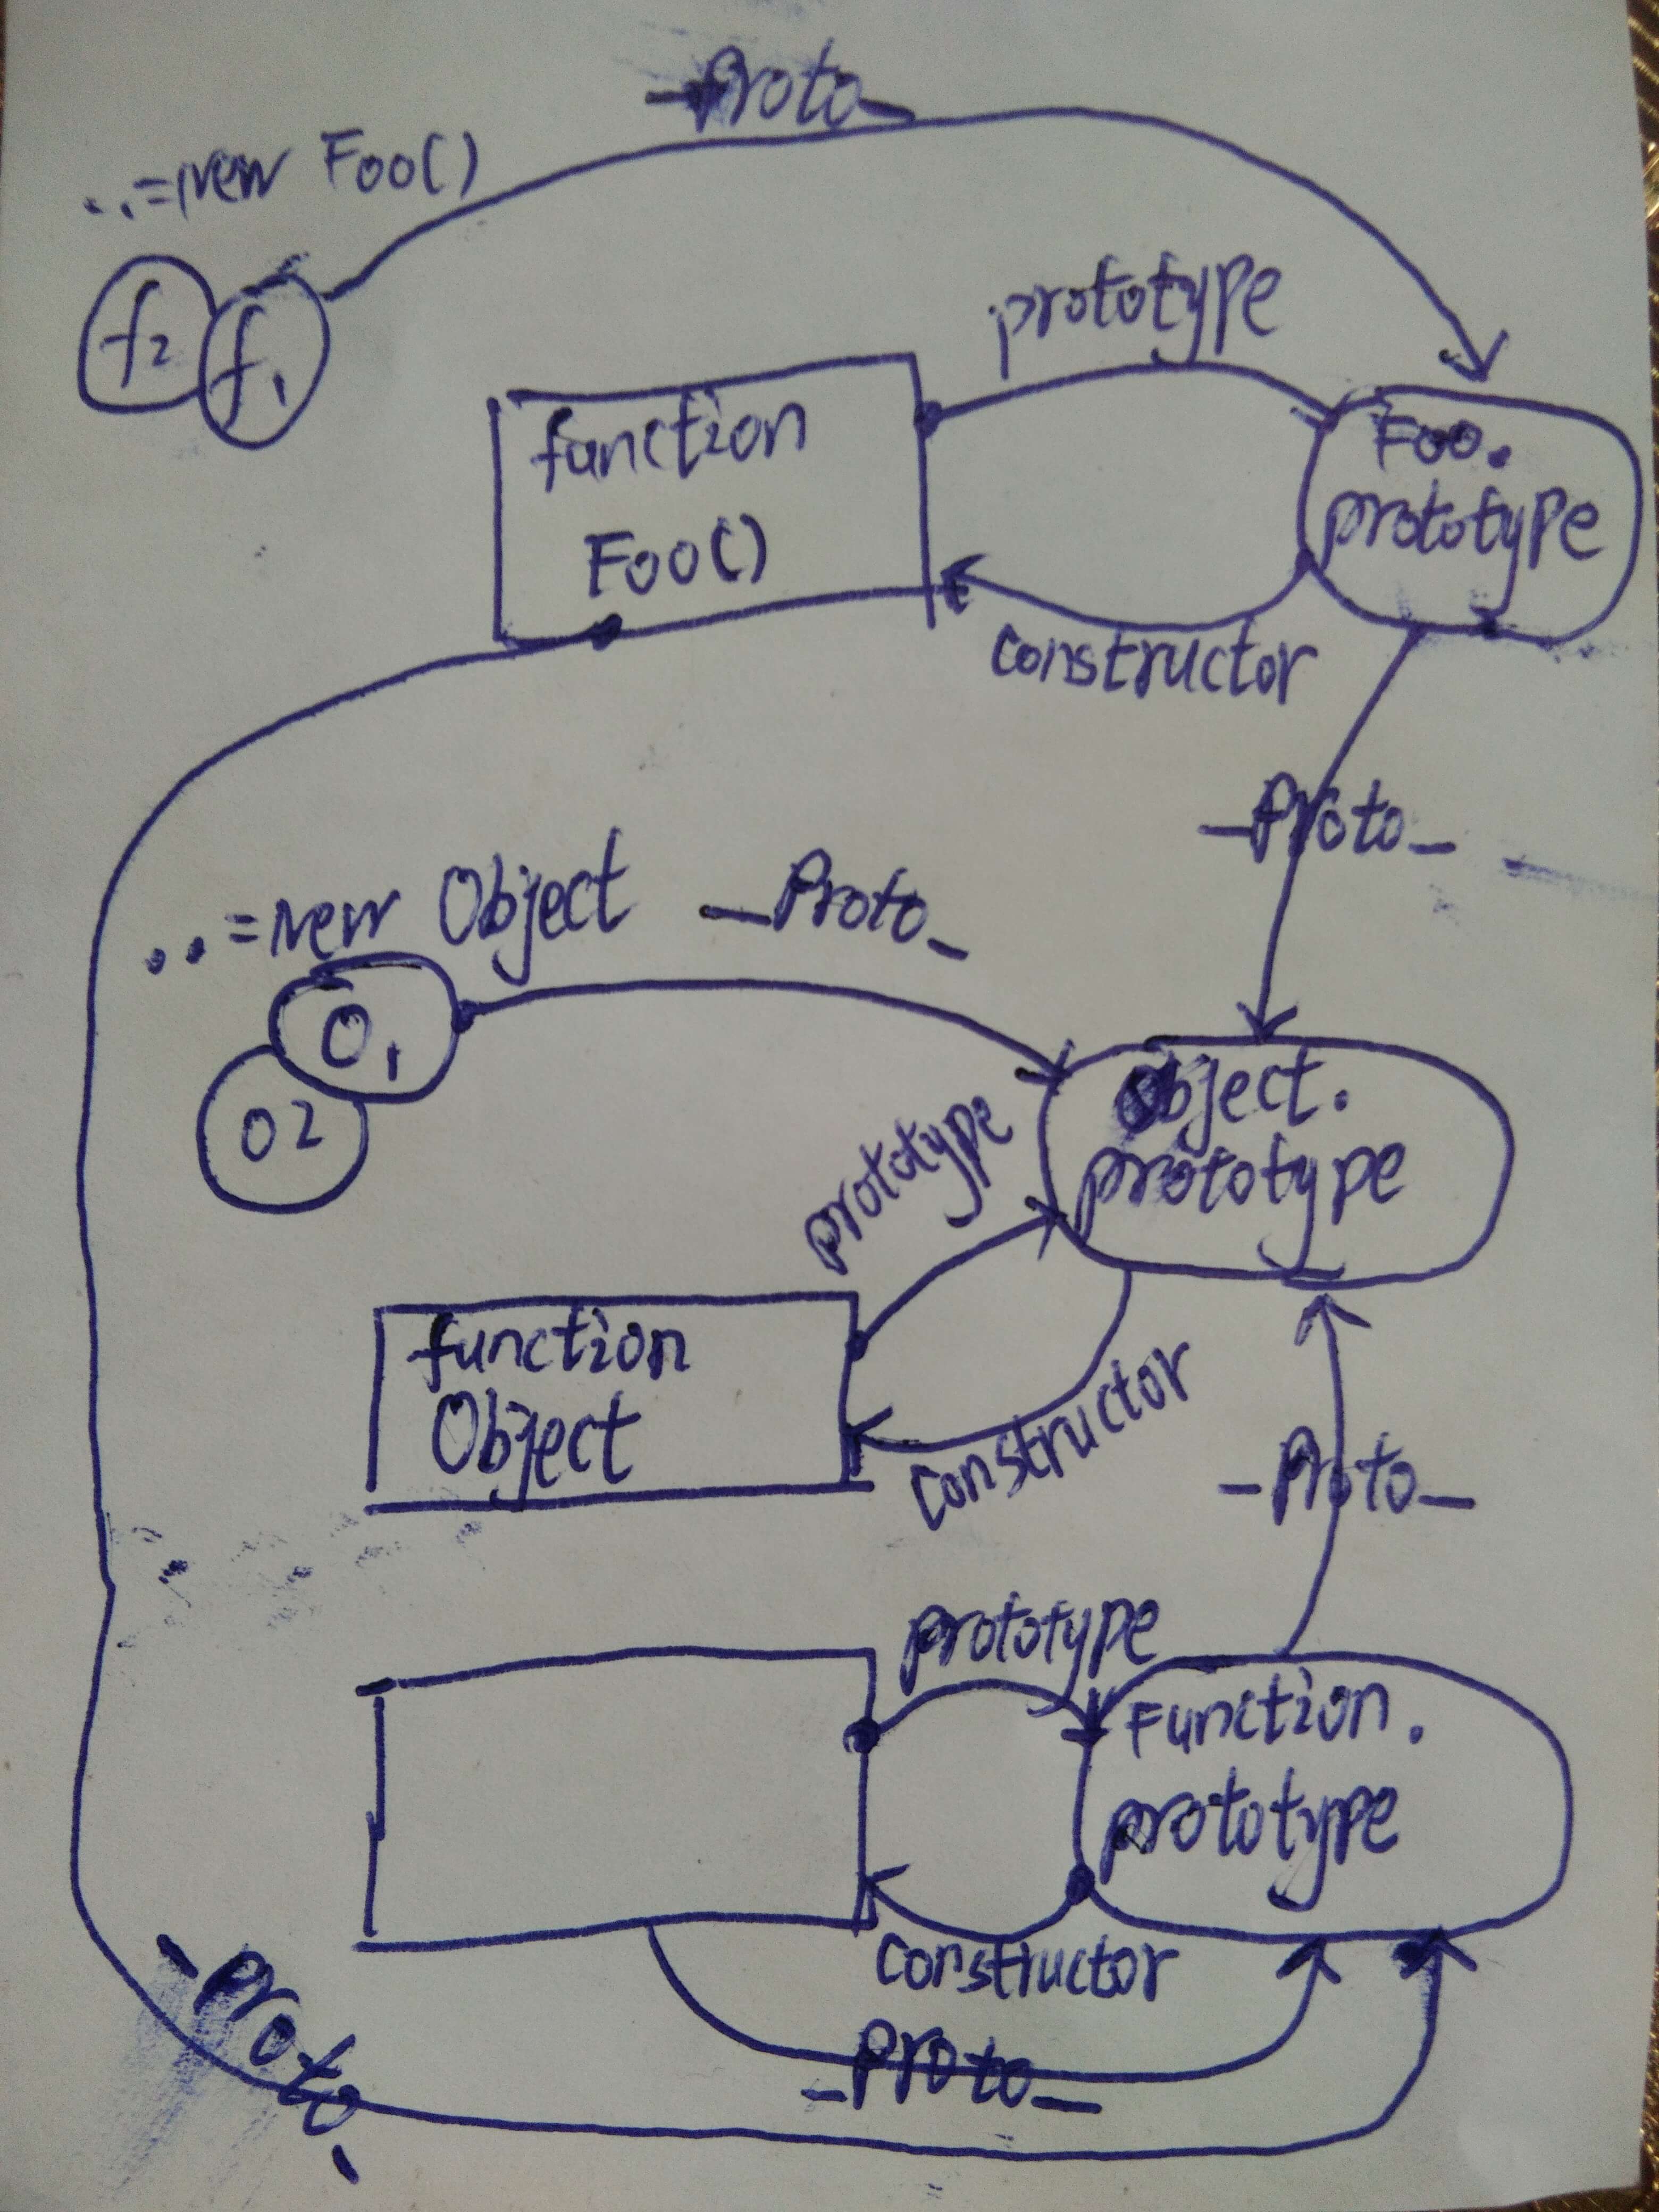 _Proto_
..=new Foo()
f2
f1
prototype
function
Foo()
Foo.
prototype
constructor
_Proto_
..=new Object
_Proto_
O1
O2
Object.
prototype
prototype
function
Object
constructor
_Proto_
prototype
Function.
prototype
constructor
_Proto_
_Proto_